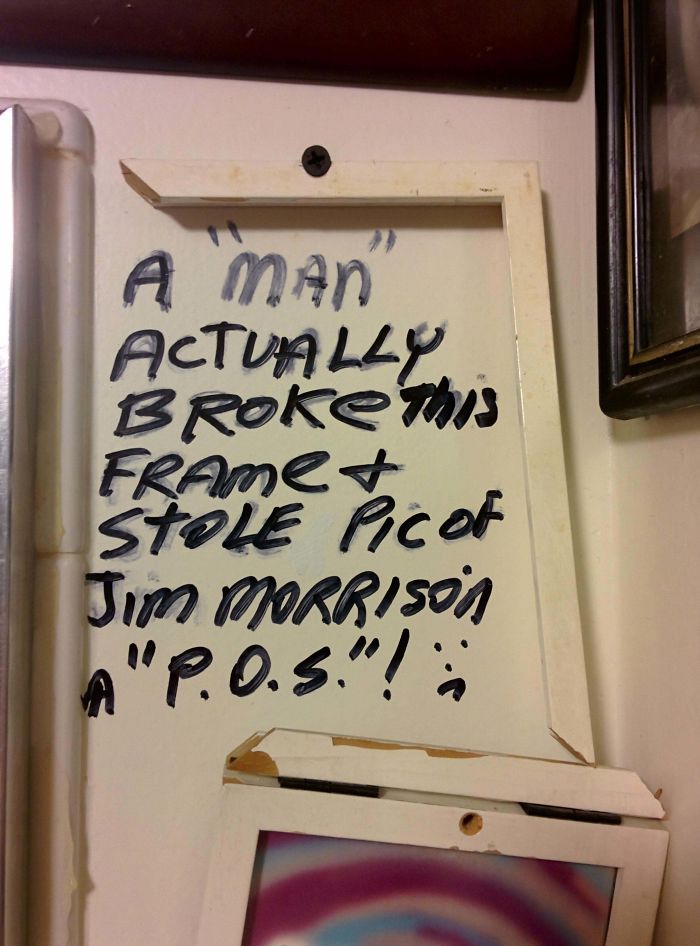 A "MAN"
ACTUALLY
BROKe This
FRAMe +
STOLE Pic OF
Jim MORRISON
A "P.O.S."! :(